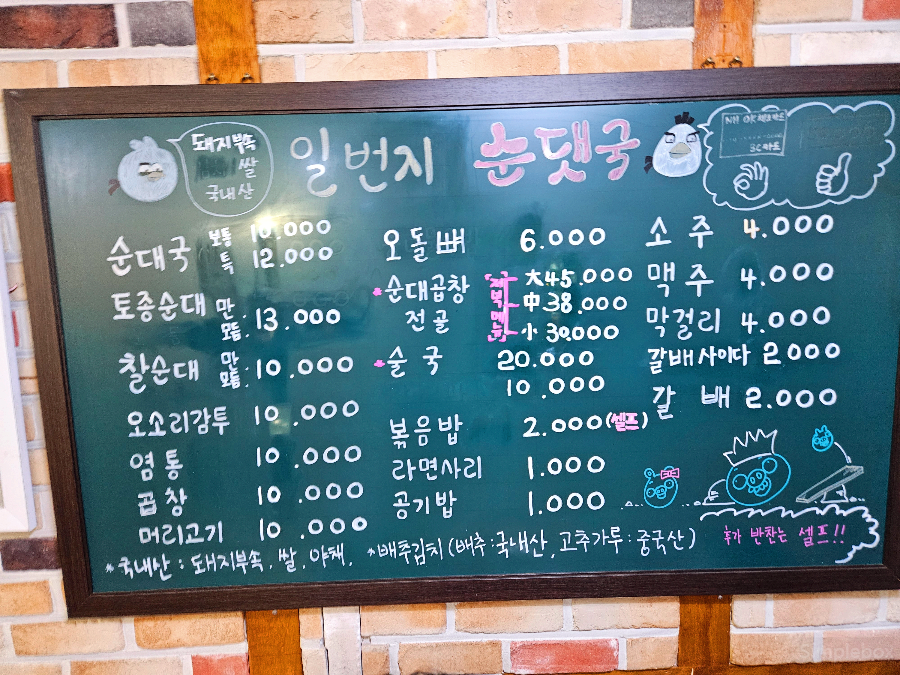 돼지부속
쌀
국내산
일번지 순댓국
NH OK 체크카드
3C카드
순대국 보통 10.000
특 12.000
토종순대 만. 모듬. 13.000
찰순대 만. 모듬. 10.000
오소리감투 10.000
염통 10.000
곱창 10.000
머리고기 10.000
오돌뼈 6.000
*순대곱창 전골 大 45.000
中 38.000
小 30.000
*술국 20.000
10.000
볶음밥 2.000(셀프)
라면사리 1.000
공기밥 1.000
소주 4.000
맥주 4.000
막걸리 4.000
갈배사이다 2000
갈배 2.000
추가 반찬는 셀프!!
*국내산 : 돼지부속. 쌀. 야채. *배추김치(배추:국내산, 고추가루:중국산)
Simplebox